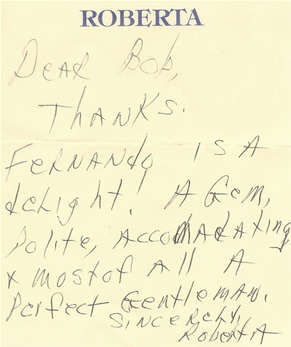 ROBERTA
Dear Bob,
Thanks.
Fernando is a
delight! A Gem,
Polite, Accomadating
& most of All A
Perfect Gentleman.
Sincerely,
Roberta